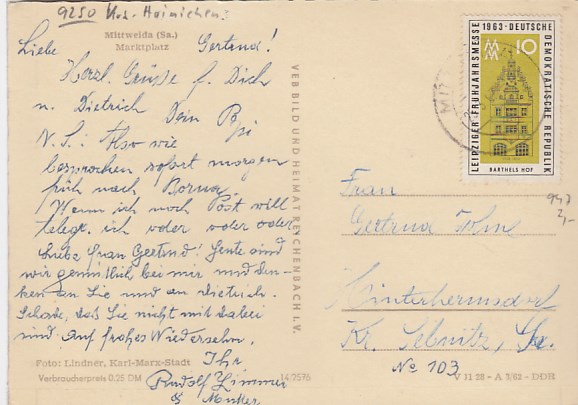 9250 Krs. Hainichen
Mittweida (Sa.)
Marktplatz
Liebe Gertrud!
Herzl. Grüße f. Dich
u. Dietrich Dein
N.S.: Also wie
besprochen sofort morgen
früh nach Borna
Wenn ich noch Post will
telegr. ich oder oder oder
Liebe Frau Gertrud! Heute sind
wir gemütlich bei mir und den-
ken an Sie und an Dietrich.
Schade, daß Sie nicht mit dabei
sind. Auf frohes Wiedersehn.
Ihr
Rudolf Zimmer
Foto: Lindner, Karl-Marx-Stadt
Verbraucherpreis 0.25 DM
14/7576
VEB BILD UND HEIMAT REICHENBACH I. V.
LEIPZIGER FRÜHJAHRSMESSE
1963 · DEUTSCHE
DEMOKRATISCHE REPUBLIK
MM
10
BARTHELS HOF
947
2,-
Frau
Gertrud
Hinterhermsdorf
Kr. Sebnitz, Sa.
No 103
V 11 28 - A 1/62 - DDR